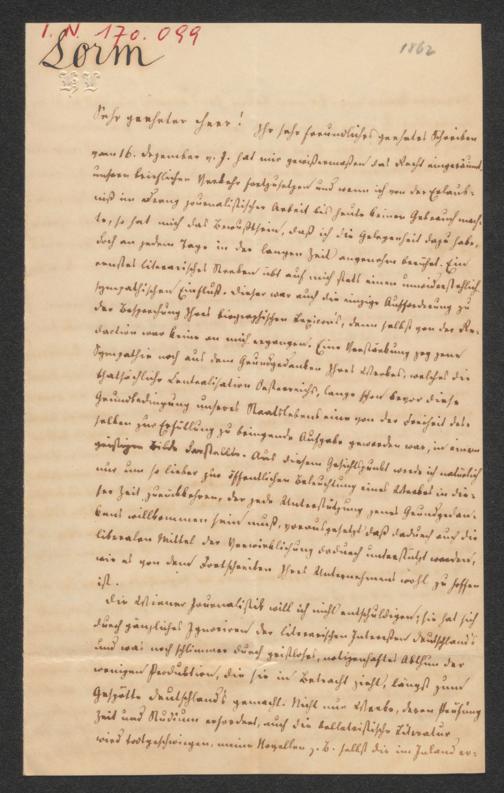 I. N. 170.099
Lorm
1862
Sehr geehrter Herr! Ihr sehr freundliches geehrtes Schreiben
vom 16. Dezember v. J. hat mir gewissermaßen das Recht eingeräumt,
unsern brieflichen Verkehr fortzusetzen und wenn ich von der Erlaub-
niß im Drang journalistischer Arbeit bis heute keinen Gebrauch mach-
te, so hat mich das Bewußtsein, daß ich die Gelegenheit dazu habe,
doch an jedem Tage in der langen Zeit angenehm berührt. Ein
ernstes literarisches Streben übt auf mich stets einen unwiderstehlich
sympathischen Einfluß. Dieser war auch die einzige Aufforderung zu
der Besprechung Ihres biographischen Lexicons, denn selbst von der Re-
daction war keine an mich ergangen. Eine Verstärkung zog jene
Sympathie noch aus dem Grundgedanken Ihres Werkes, welches die
thatsächliche Centralisation Oesterreichs, lange schon bevor diese
Grundbedingung unseres Staatslebens eine von der Freiheit des-
selben zur Erfüllung zu bringende Aufgabe geworden war, in einem
geistigen Bilde darstellte. Aus diesem Gesichtspunkt werde ich natürlich
nur um so lieber zur öffentlichen Beleuchtung eines Werkes in die-
ser Zeit zurückkehren, der jede Unterstützung jenes Grundgedan-
kens willkommen sein muß, vorausgesetzt daß dadurch auch die
liberalen Mittel der Verwirklichung dadurch unterstützt werden,
wie es von dem Fortschreiten Ihres Unternehmens wohl zu hoffen
ist.
Die Wiener Journalistik will ich nicht entschuldigen; sie hat sich
durch gänzliches Ignoriren der literarischen Interessen Deutschland's
und was noch schlimmer durch geistloses, notizenhaftes Abthun der
wenigen Produktion, die sie in Betracht zieht, längst zum
Gespötte Deutschland's gemacht. Nicht nur Werke, deren Prüfung
Zeit und Studium erfordert, auch die belletristische Literatur
wird todtgeschwiegen, meine Novellen z. B. selbst die im Inland er-